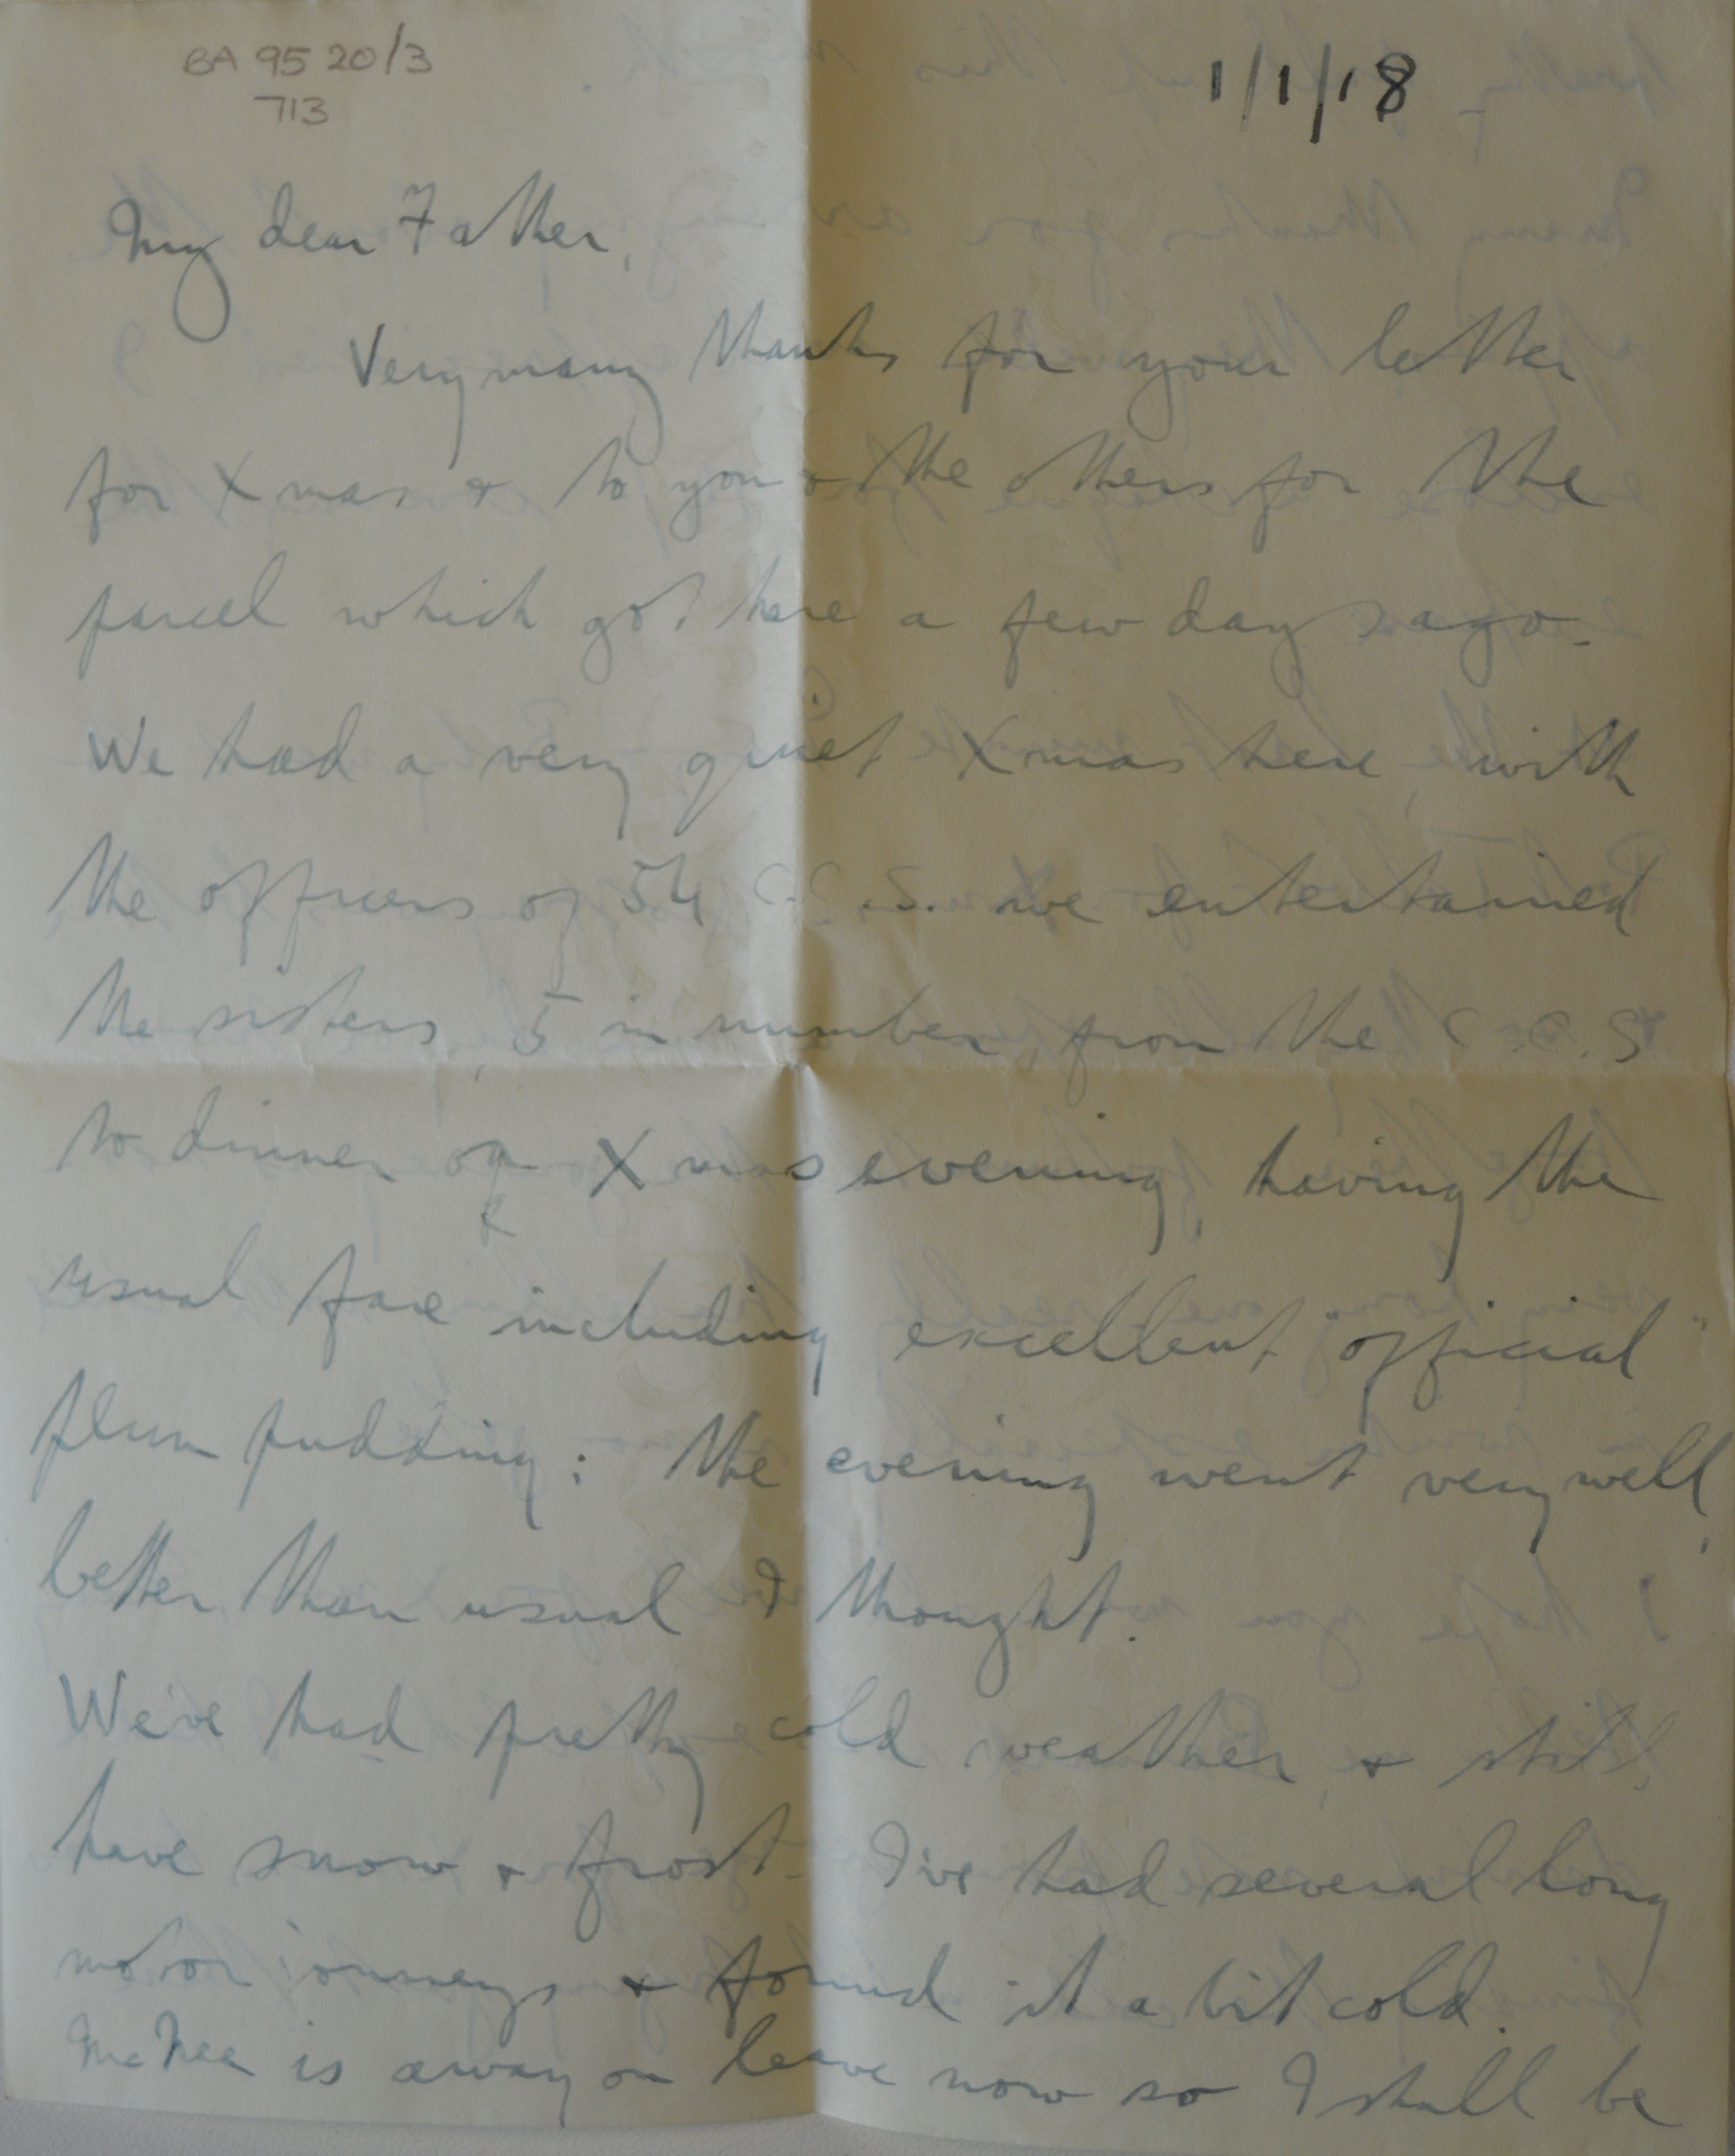 BA 9520/3
713
1/1/18
My dear Father,
Very many thanks for your letter
for Xmas & to you & the others for the
parcel which got here a few days ago.
We had a very quiet Xmas here, with
the officers of 54 C.C.S. we entertained
the sisters, 5 in number, from the C.C.S
to dinner on Xmas evening, having the
usual fare including excellent "official"
plum pudding: the evening went very well,
better than usual I thought.
We've had pretty cold weather, & still
have snow & frost. I've had several long
motor journeys & found it a bit cold.
McNee is away on leave now so I shall be